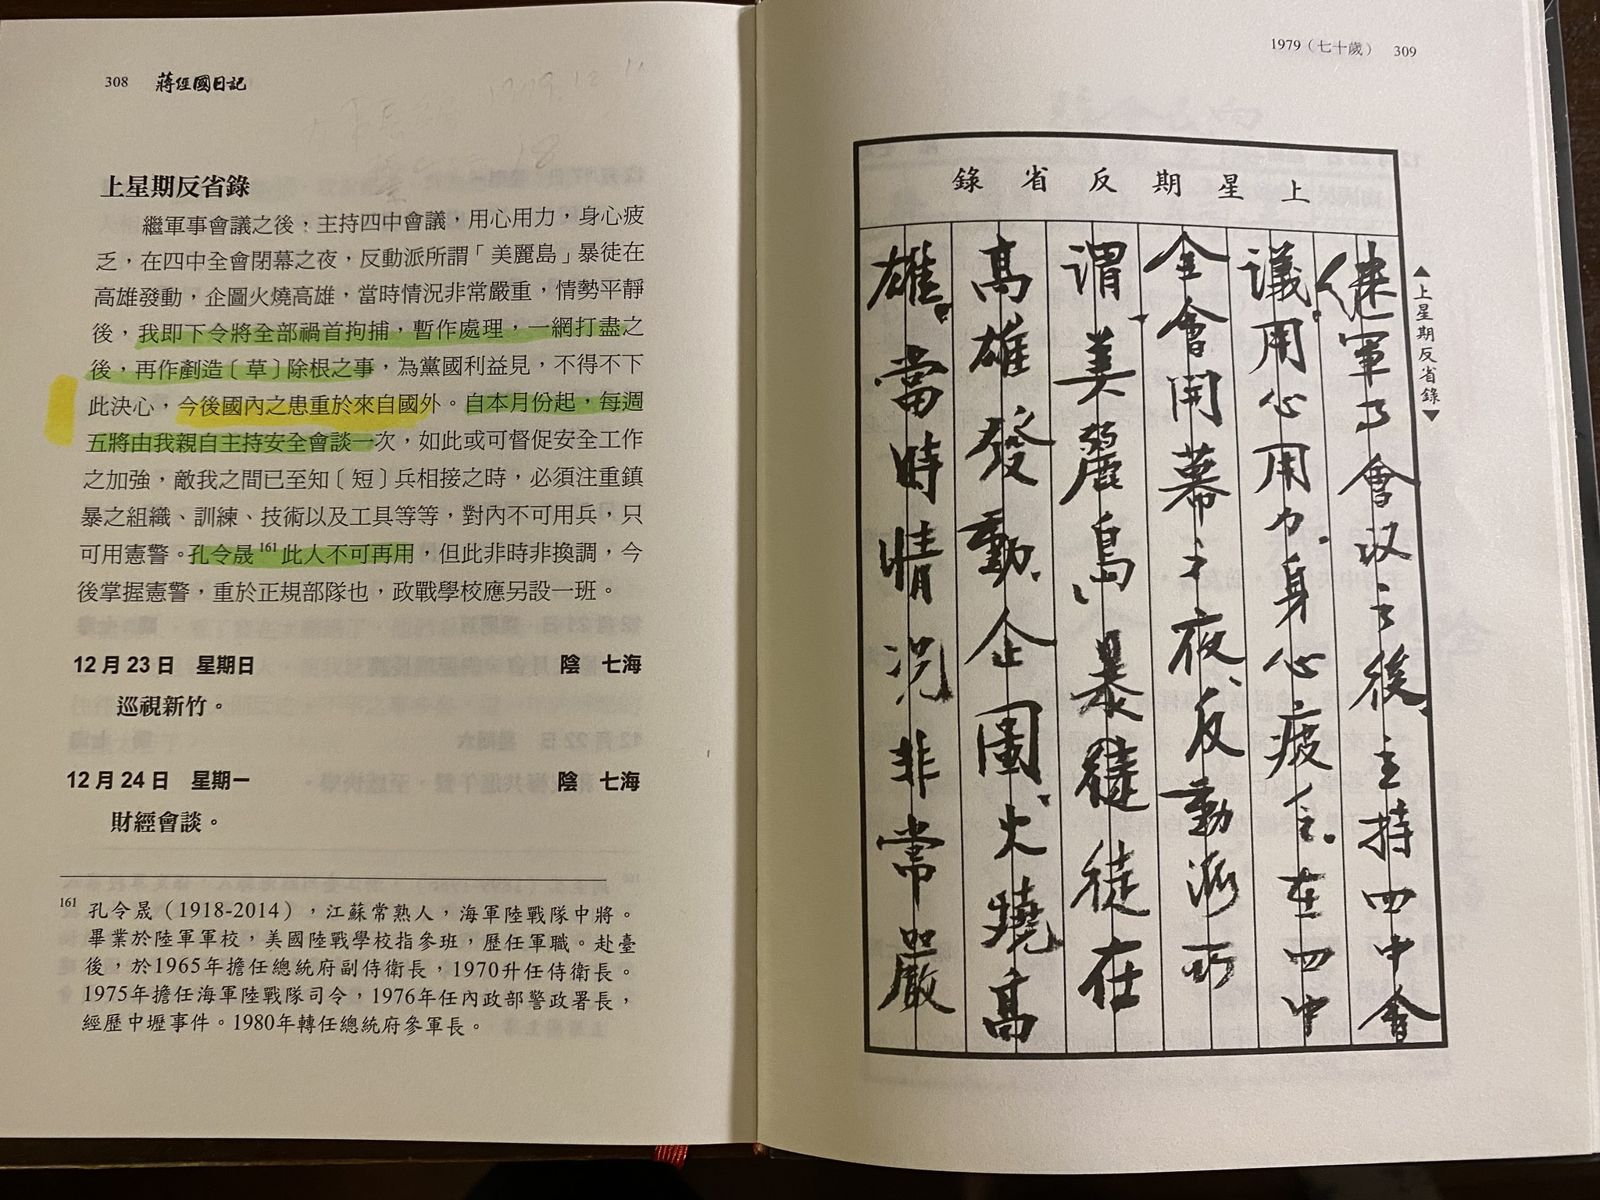 308 蔣經國日記
上星期反省錄
繼軍事會議之後，主持四中會議，用心用力，身心疲
乏，在四中全會閉幕之夜，反動派所謂「美麗島」暴徒在
高雄發動，企圖火燒高雄，當時情況非常嚴重，情勢平靜
後，我即下令將全部禍首拘捕，暫作處理，一網打盡之
後，再作剷造〔草〕除根之事，為黨國利益見，不得不下
此決心，今後國內之患重於來自國外。自本月份起，每週
五將由我親自主持安全會談一次，如此或可督促安全工作
之加強，敵我之間已至知〔短〕兵相接之時，必須注重鎮
暴之組織、訓練、技術以及工具等等，對內不可用兵，只
可用憲警。孔令晟161此人不可再用，但此非時非換調，今
後掌握憲警，重於正規部隊也，政戰學校應另設一班。
12 月 23 日 星期日 陰 七海
巡視新竹。
12 月 24 日 星期一 陰 七海
財經會談。
161 孔令晟（1918-2014），江蘇常熟人，海軍陸戰隊中將。
畢業於陸軍軍校，美國陸戰學校指參班，歷任軍職。赴臺
後，於1965年擔任總統府副侍衛長，1970升任侍衛長。
1975年擔任海軍陸戰隊司令，1976年任內政部警政署長，
經歷中壢事件。1980年轉任總統府參軍長。
1979（七十歲） 309
▲上星期反省錄▼
上星期反省錄
繼軍事會議之後，主持四中會
議，用心用力，身心疲乏，在四中
全會閉幕之夜，反動派所
謂，美麗島暴徒在
高雄發動，企圖，火燒高
雄，當時情況非常嚴